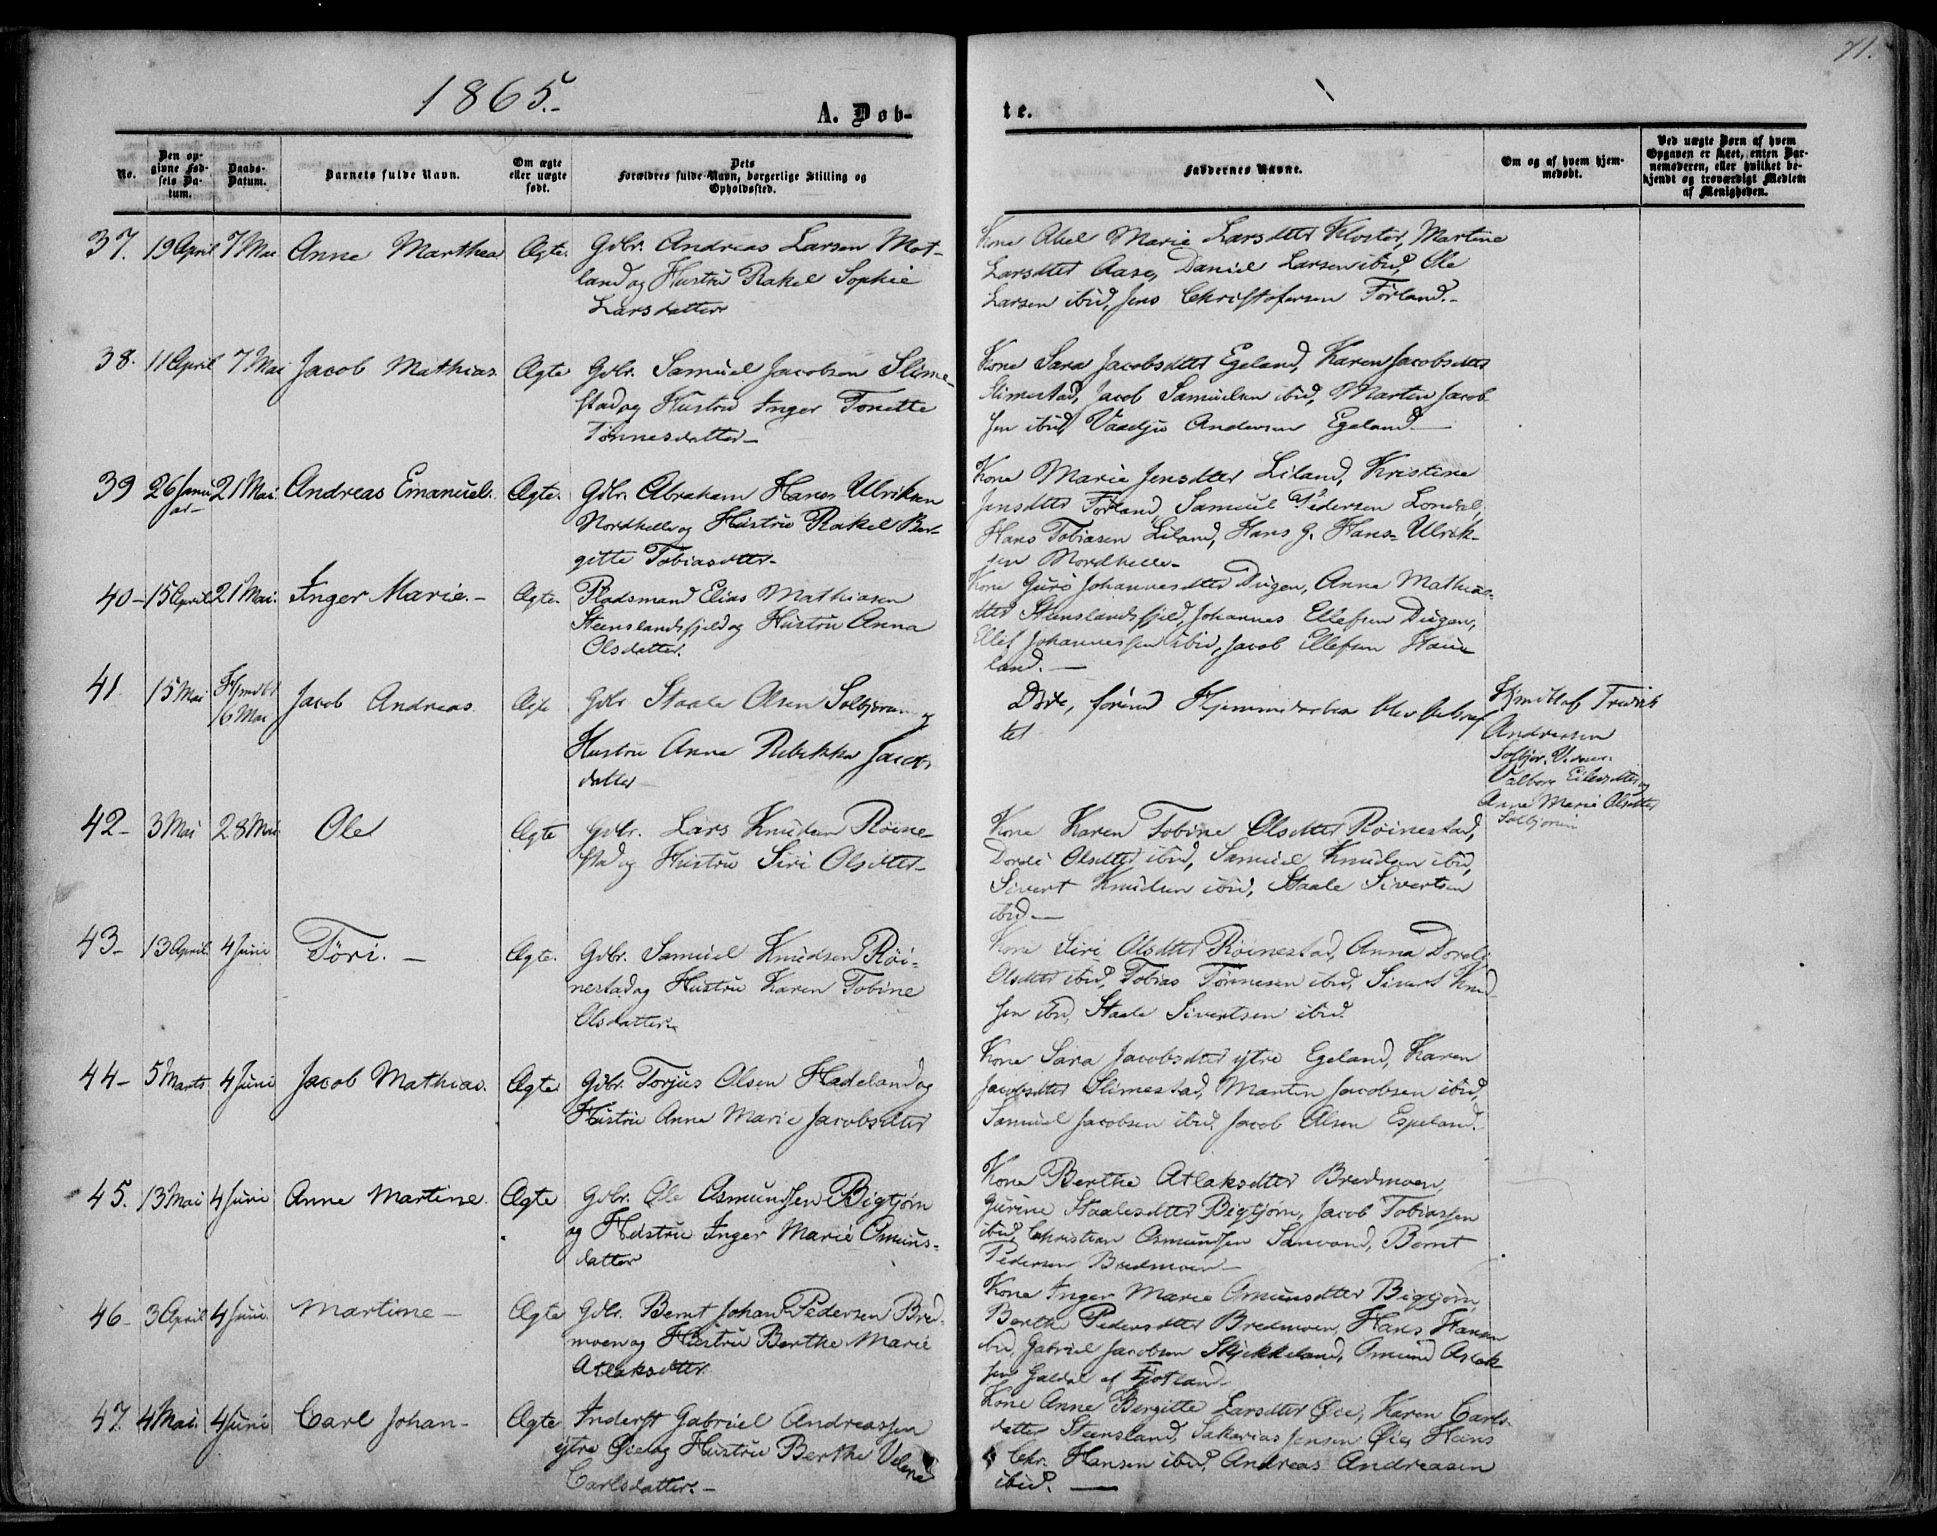 71.
1865.-
A. Døb-
te.
No.
Den op-
givne Fød-
sels Da-
tum.
Daabs-
Datum.
Barnets fulde Navn.
Om ægte
eller uægte
født.
Dets
Forældres fulde Navn, borgerlige Stilling og
Opholdssted.
Faddernes Navne.
Om og af hvem hjem-
medøbt.
Ved uægte Børn af hvem
Opgaven er skeet, enten Bar-
nemoderen, eller hvilket be-
kjendt og troværdigt Medlem
af Menigheden.
37. 19 April 7 Mai Anne Marthea Ægte. Gdbr. Andreas Larsen Mot-
land og Hustru Rakel Sophie
Larsdatter
Kone Abel Marie Larsdtter Kloster, Martine
Larsdtter Aase, Daniel Larsen ibid, Ole
Larsen ibid, Jens Christofersen Førland.-
38. 11 April 7 Mai Jacob Mathias. Ægte Gdbr. Samuel Jacobsen Slime-
stad og Hustru Inger Tonette
Tønnesdatter-
Kone Sara Jacobsdtter Egeland, Karen Jacobsdtter
Slimestad, Jacob Samuelsen ibid, Martin Jacob
sen ibid, Andersen Egeland.-
39 26 Janu
ar- 21 Mai. Andreas Emanuel. Ægte. Gdbr. Abraham Hans Ulriksen
Nordhelle og Hustru Rakel Ber-
gitte Tobiasdtter-
Kone Marie Jensdtter Liland, Kristine
Jensdtter Førland, Samuel Pedersen Londal,
Hans Tobiasen Liland, Hans G. Hans- Ulrik-
sen Nordhelle-
40- 15 April 21 Mai. Inger Marie.- Ægte. Pladsmand Elias Mathiasen
Steenslandsfjeld og Hustru Anna
Olsdatter.
Kone Guro Johannesdtter Dugan, Anna Mathias-
dtter Steenslandsfjeld, Johannes Ellefsen Dugan,
Ellef Johannessen ibid, Jacob Ellefsen Haue
land.-
41. 15 Mai Hjmdbt
16 Mai Jacob Andreas. Ægte Gdbr. Staale Olsen Solbjorum og
Hustru Anne Rebekka Jacobs
datter
Døde, førend Hjemmedaaben blev bekræf
tet
Hjmdt af Fredrik
Andreasen
Solbjor. Vidner.
Valborg Eilertsdtter og
Anne Marie Olsdtter
Solbjorum
42- 3 Mai 28 Mai Ole Ægte Gdbr. Lars Knudsen Røine-
stad og Hustru Siri Olsdtter-
Kone Karen Tobine Olsdtter Røinestad,
Dorde Olsdtter ibid, Samuel Knudsen ibid,
Sivert Knudsen ibid, Staale Sivertsen
ibid-
43- 13 April. 4 Juni Töri.- Ægte. Gdbr. Samuel Knudsen Røi-
nestad og Hustru Karen Tobine
Olsdatter-
Kone Siri Olsdtter Røinestad, Anna Dorde
Olsdtter ibid, Tobias Tønnesen ibid, Sivert Knud
sen ibid, Staale Sivertsen ibid.
44- 5 Marts 4 Juni Jacob Mathias. Ægte Gdbr. Torjus Olsen Hadeland og
Hustru Anne Marie Jacobsdtter
Kone Sara Jacobsdtter ytre Egeland, Karen
Jacobsdtter Slimestad, Martin Jacobsen ibid,
Samuel Jacobsen ibid, Jacob Olsen Espeland.
45. 13 Mai 4 Juni Anne Martine. Ægte Gdbr. Ole Osmundsen Bigtjørn
og Hustru Inger Marie Omuns-
datter
Kone Berthe Atlaksdtter Bredmoen,
Gurine Staalesdtter Bigtjørn, Jacob Tobiassen
ibid, Christian Osmundsen Sanvand, Bernt
Pedersen Bredmoen-
46- 3 April 4 Juni. Martine- Ægte Gdbr. Bernt Johan Pedersen Bred-
moen og Hustru Berthe Marie
Atlaksdtter.
Kone Inger Marie Omunsdtter Bigtjørn,
Berthe Pedersdtter Bredmoen, Hans Hansen
ibid, Gabriel Jacobsen Skjekkeland, Omund Aslak-
sen Galdal af Fjotland-
47. 4 Mai. 4 Juni Carl Johan- Ægte Inderst Gabriel Andreassen
ytre Øie og Hustru Berthe Velene
Carlsdatter.-
Kone Anne Bergitte Larsdtter Øie, Karen Carls-
datter Steensland, Sakarias Jensen Øie, Hans
Chr. Hansen ibid, Andreas Andreasen
ibid.-